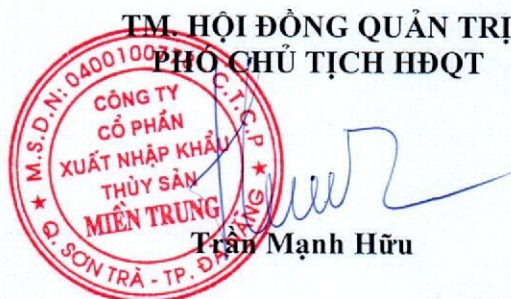 TM. HỘI ĐỒNG QUẢN TRỊ
PHÓ CHỦ TỊCH HĐQT
M.S.D.N: C.T.C.P
CÔNG TY
CỔ PHẦN
XUẤT NHẬP KHẨU
THỦY SẢN
MIỀN TRUNG
Q. SƠN TRÀ - TP. ĐÀ NẴNG
Trần Mạnh Hữu